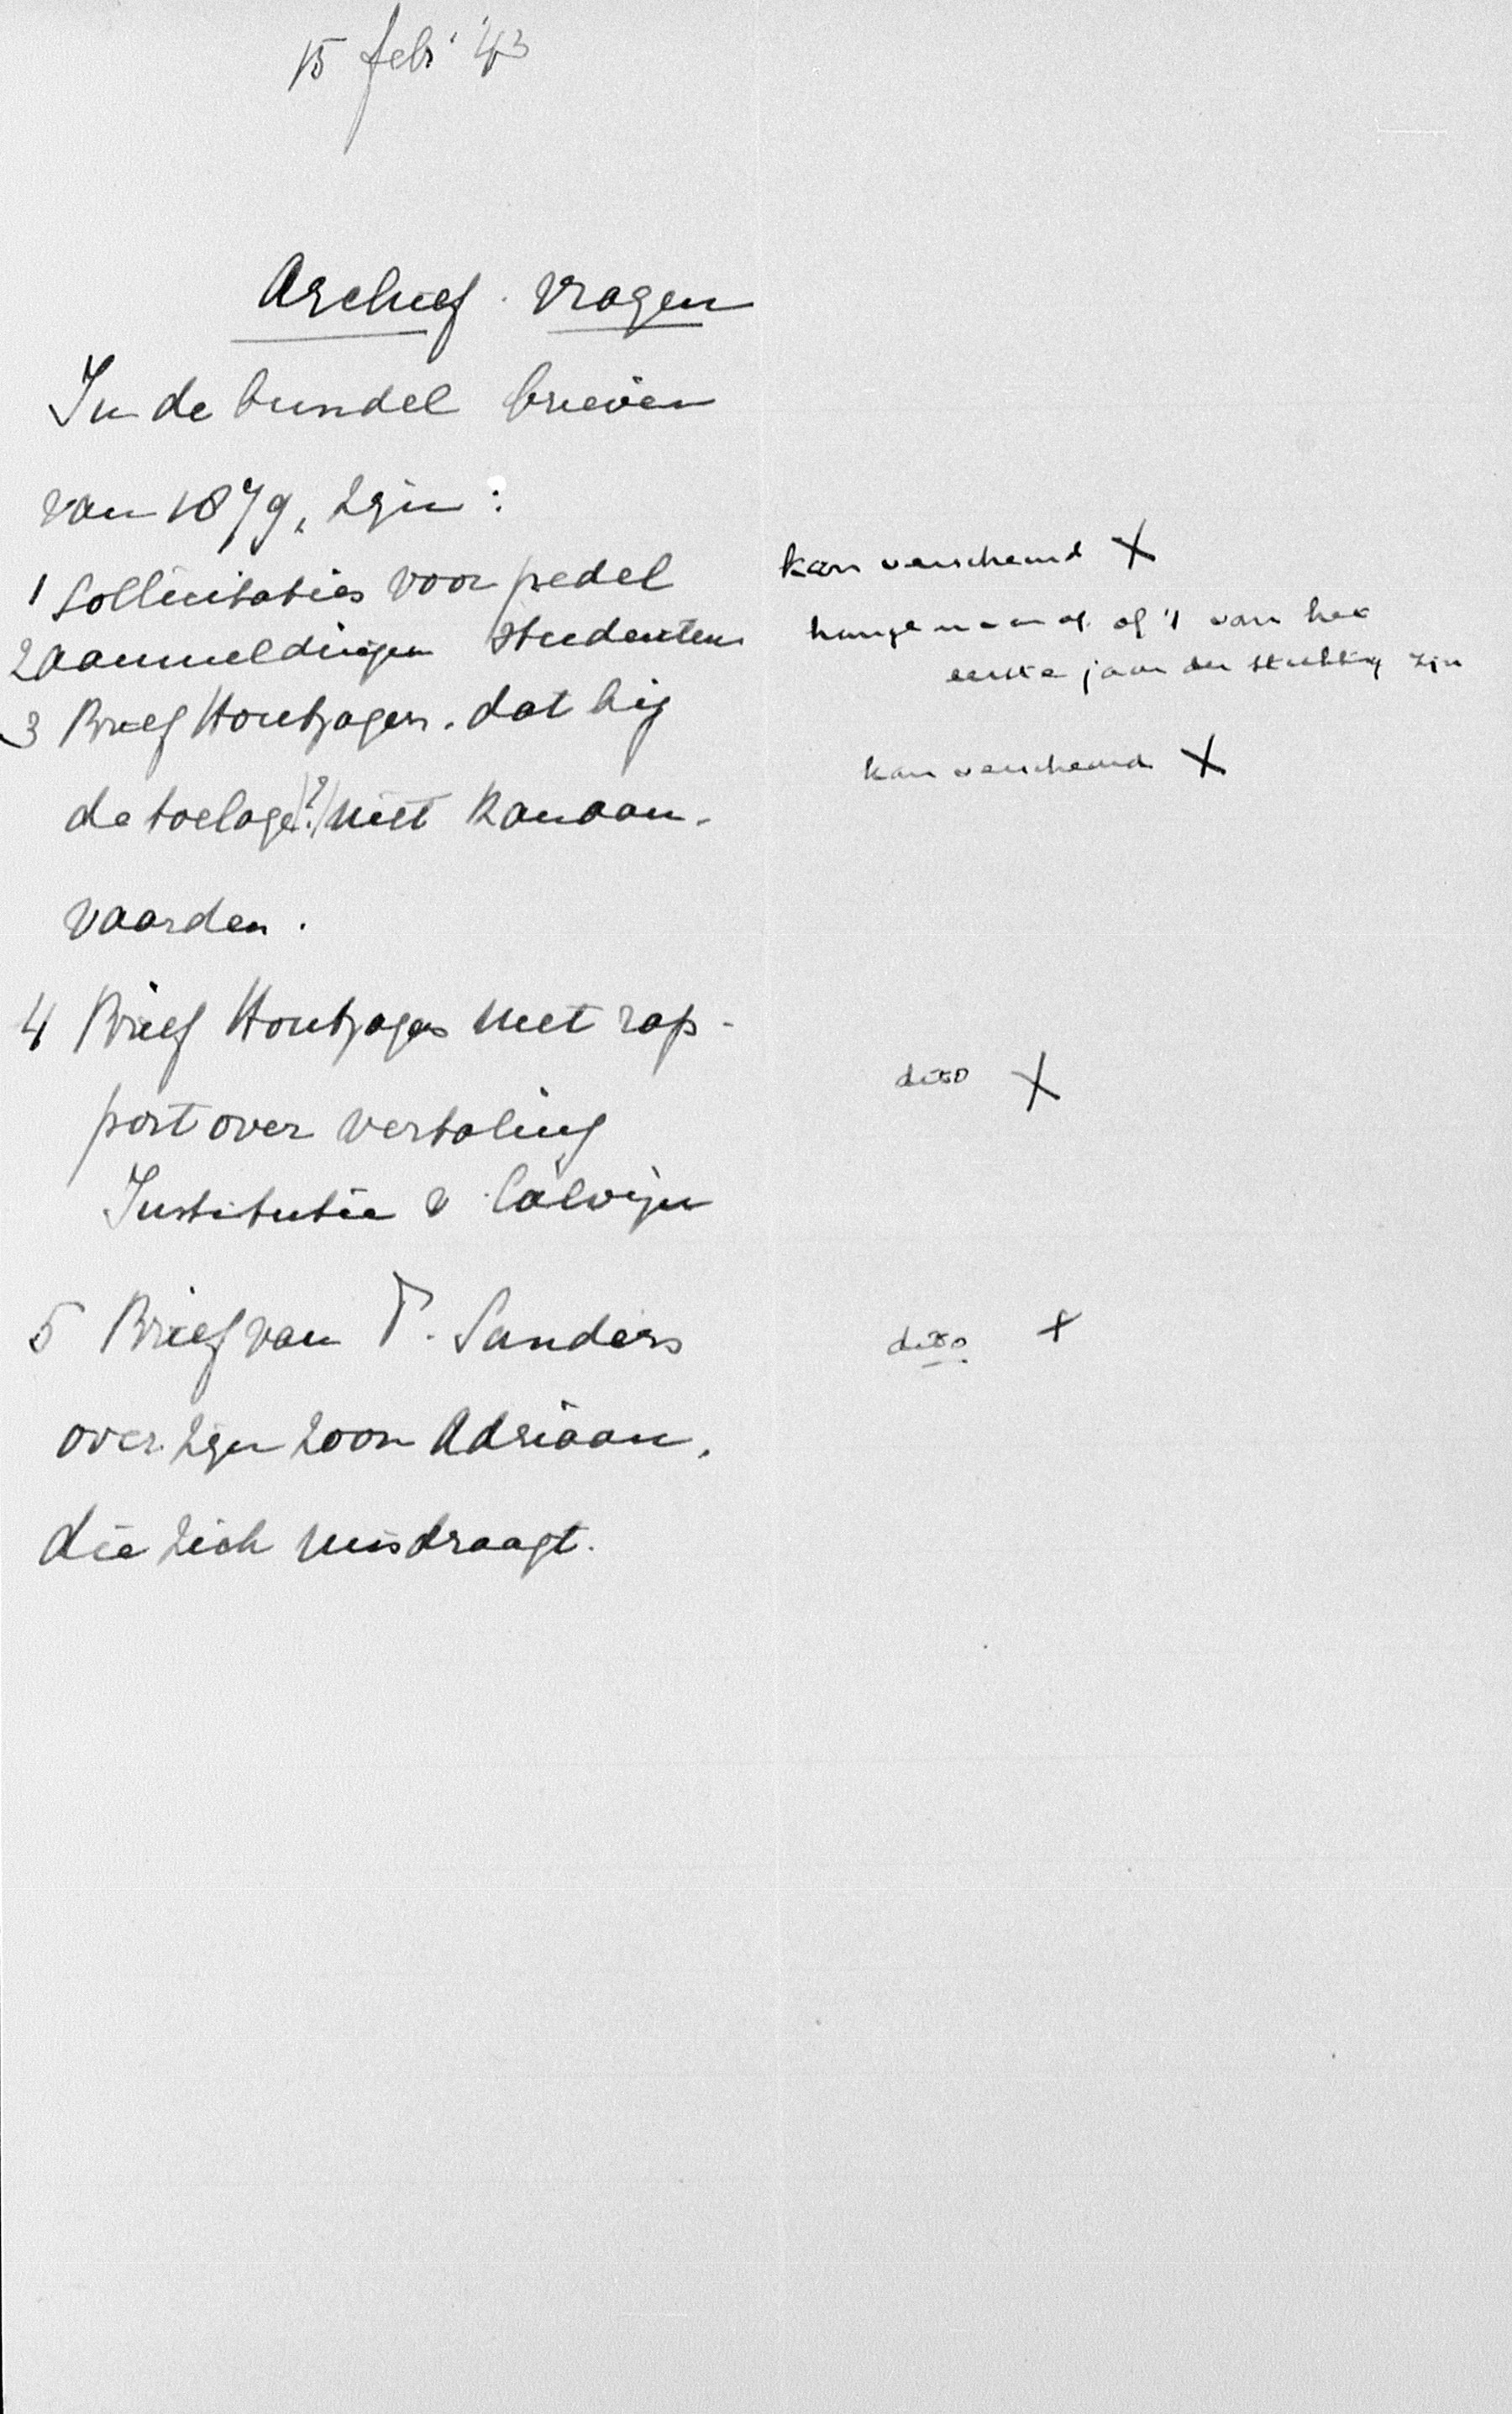 15 febr '43
Archief. vragen
In de bundel brieven
van 1879, zijn:
1 Sollicitaties voor pedel
kan verscheurd X
2 aanmeldingen studenten
hangt er van af of 't van het
eerste jaar der stichting zijn
3 Brief Houtzagers. dat hij
kan verscheurd X
de toelage (?) niet kan aan-
vaarden.
4 Brief Houtzagers met rap-
dito X
port over vertaling
Institutie v. Calvijn
5 Brief van T. Sanders
dito X
over zijn zoon Adriaan,
die zich misdraagt.